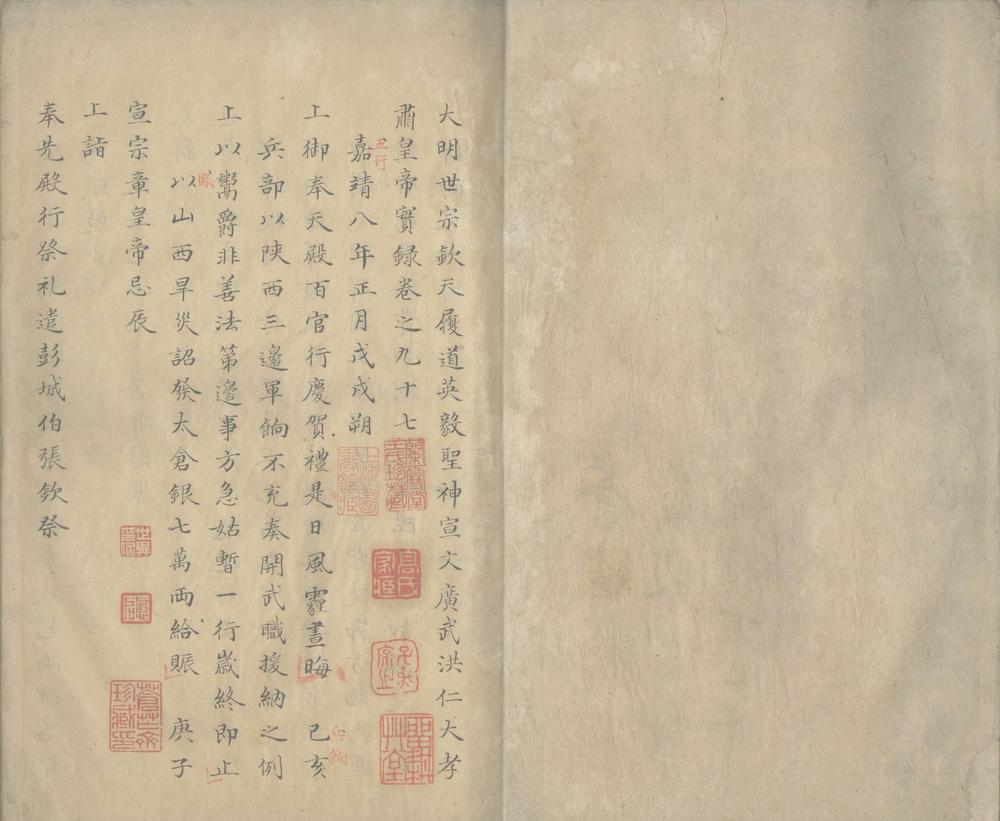 大明世宗欽天履道英毅聖神宣文廣武洪仁大孝
肅皇帝實録卷之九十七
嘉靖八年正月戊戌朔
上御奉天殿百官行慶賀禮是日風霾晝晦 己亥
兵部以陝西三邊軍餉不充奏開武職援納之例
上以鬻爵非善法第邊事方急姑暫一行歲終即止
以山西旱災詔發太倉銀七萬両給賑 庚子
宣宗章皇帝忌辰
上詣
奉先殿行祭礼遣彭城伯張欽祭
五行
兵餉
賑
高氏家藏